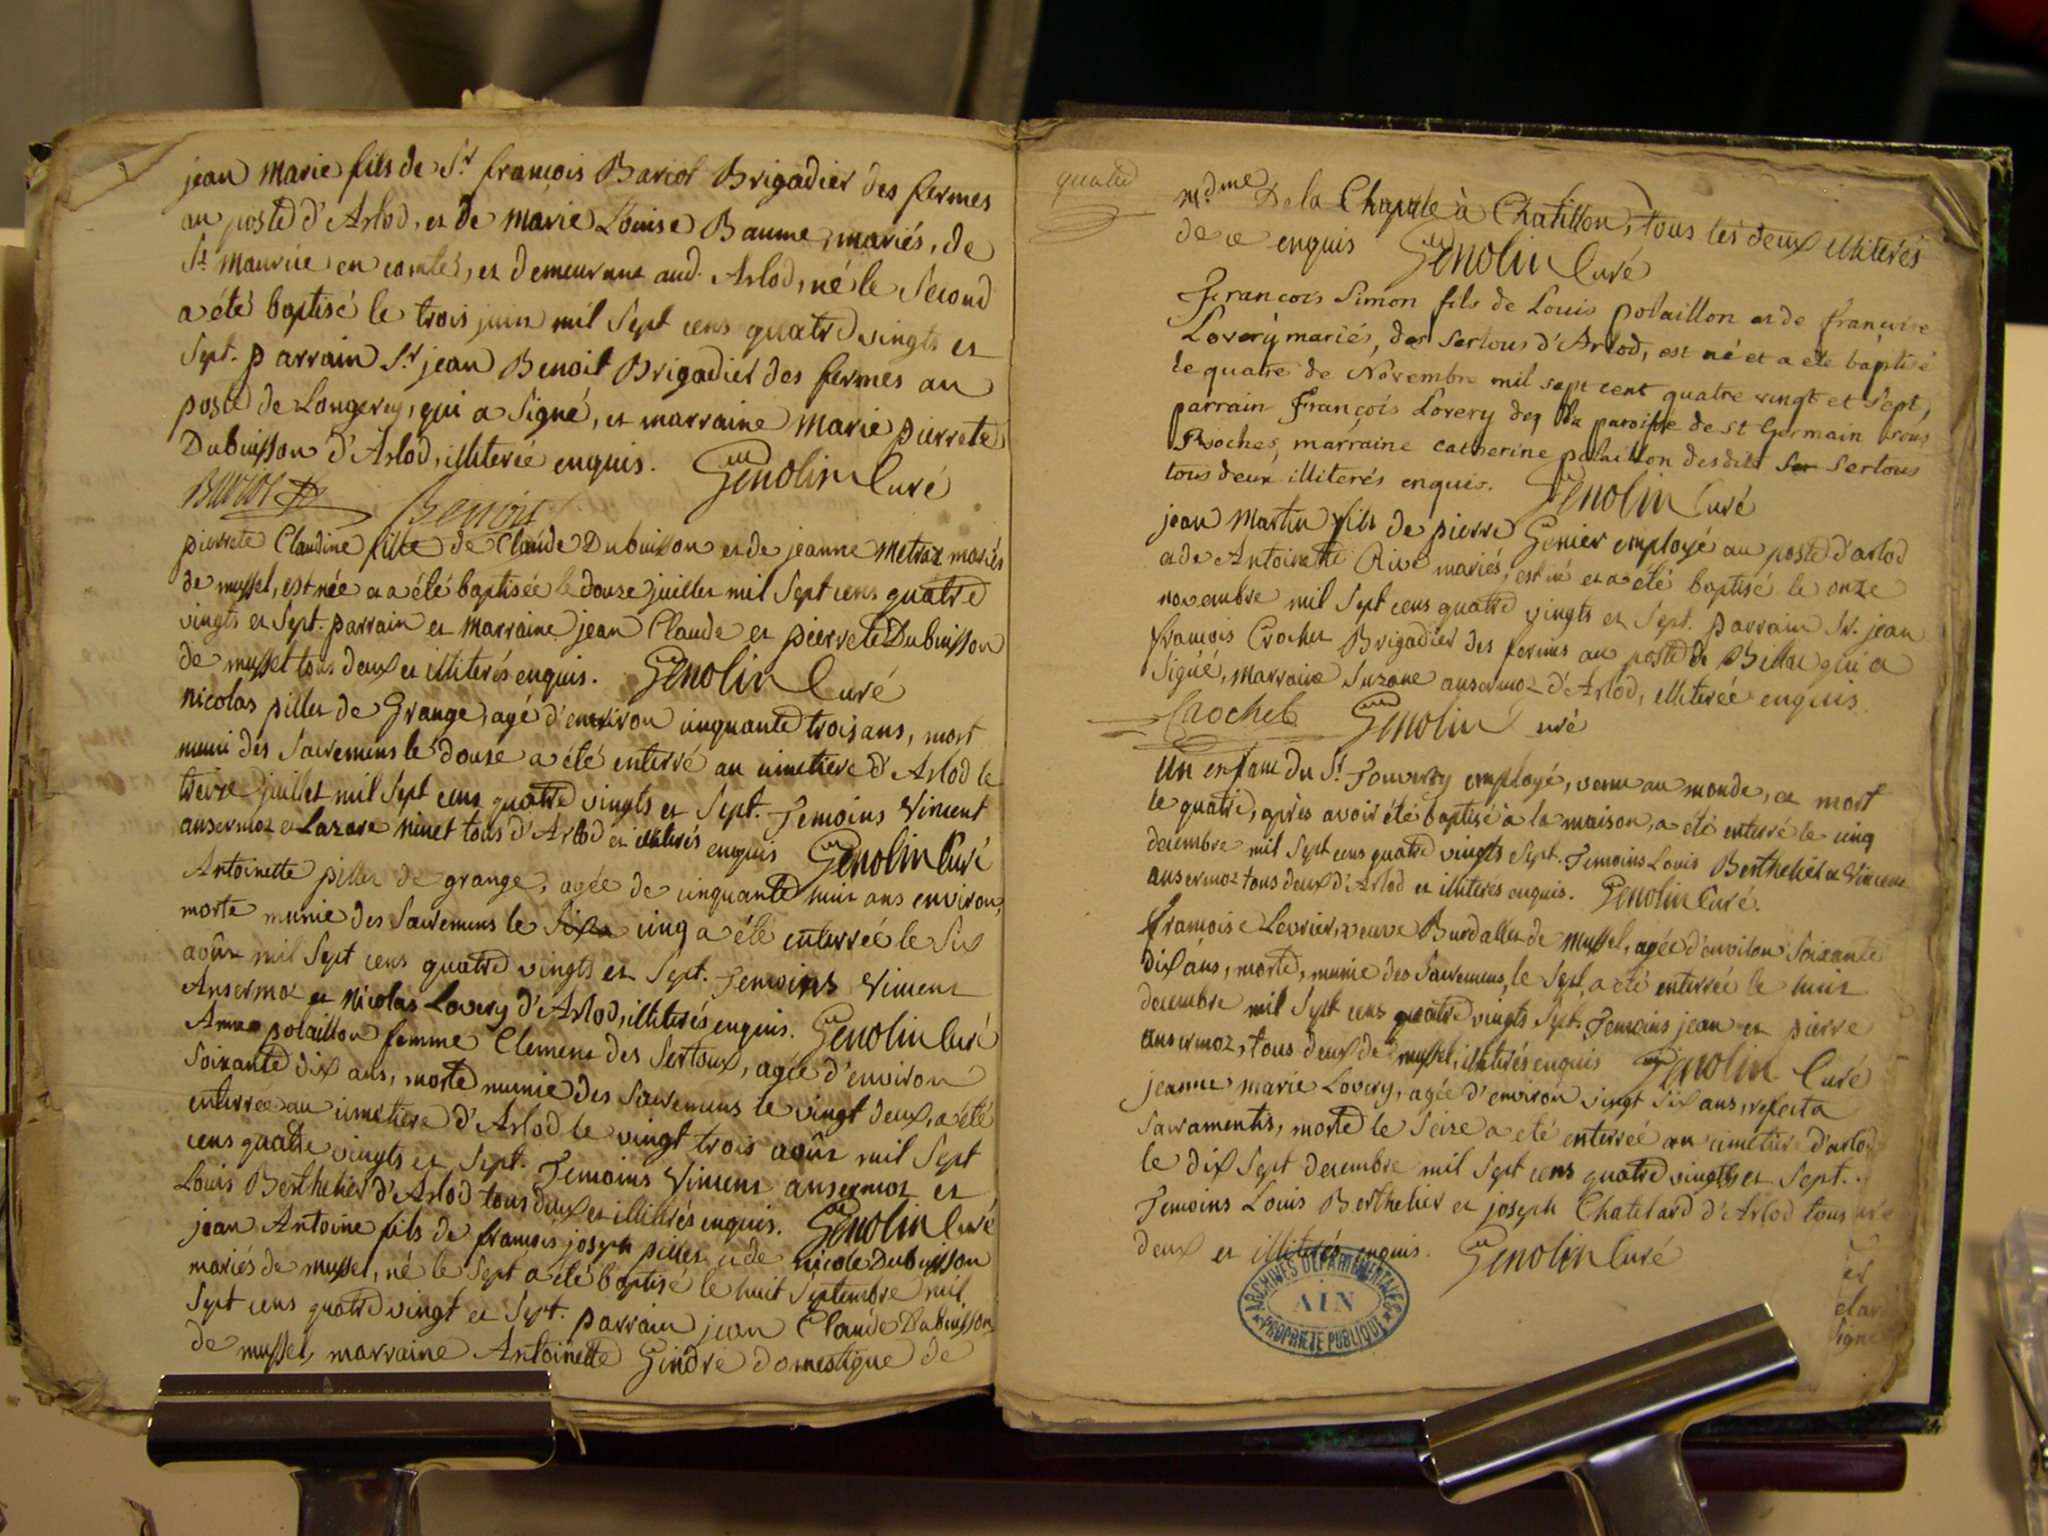 jean marie fils de Sr. françois Bariot Brigadier des fermes
au poste d'Arlod, et de marie Louise Baume, mariés, de
St. maurice en comté, et demeurant aud. Arlod, né le Second
a été baptisé le trois juin mil Sept cens quatre vingts et
Sept. parrain Sr. jean Benoit Brigadier des fermes au
poste de Longerey, qui a Signé, et marraine marie pierrete
Dubuisson d'Arlod, illiterée enquis. Genolin Curé
Bariot Benoit
pierrete Claudine fille de Claude Dubuisson et de jeanne metraz mariés
de mussel, est née et a été baptisée le douze juillet mil Sept cens quatre
vingts et Sept. parrain et marraine jean Claude et pierrete Dubuisson
de mussel tous deux et illiterés enquis. Genolin Curé
nicolas piller de Grange, agé d'environ cinquante trois ans, mort
muni des Sacremens le douze a été enterré au cimetiere d'Arlod le
treize juillet mil Sept cens quatre vingts et Sept. Temoins Vincent
ansermoz et Lazare ninet tous d'Arlod et illiterés enquis Genolin Curé
Antoinette piller de grange, agée de cinquante huit ans environ,
morte munie des Sacremens le cinq a été enterrée le Six
août mil Sept cens quatre vingts et Sept. Temoins Vincent
Ansermoz et nicolas Lovery d'Arlod, illiterés enquis. Genolin Curé
Anne polaillon femme Clement des Sertoux, agée d'environ
Soixante dix ans, morte munie des Sacremens le vingt deux, a été
enterrée au cimetiere d'Arlod le vingt trois août mil Sept
cens quatre vingts et Sept. Temoins Vincent ansermoz et
Louis Berthelier d'Arlod tous deux et illiterés enquis. Genolin Curé
jean Antoine fils de françois joseph piller et de nicole Dubuisson
mariés de mussel, né le Sept a été baptisé le huit Septembre mil
Sept cens quatre vingt et Sept. parrain jean Claude Dubuisson
de mussel, marraine Antoinette Gindre domestique de
quatre
mdme. De la Chapelle à Chatillon, tous les deux illiterés
de ce enquis Genolin Curé
François Simon fils de Louis polaillon et de françoise
Lovery mariés, des Sertous d'Arlod, est né et a été baptisé
le quatre de Novembre mil sept cent quatre vingt et Sept,
parrain François Lovery de la paroisse de St Germain sous
Roches, marraine catherine polaillon desdits Sertous
tous deux illiterés enquis. Genolin Curé
jean Martin fils de pierre Genier employé au poste d'arlod
et de Antoinette Rive mariés, est né et a été baptisé le onze
novembre mil Sept cens quatre vingts et Sept. parrain Sr. jean
françois Crochet Brigadier des fermes au poste de Billiat qui a
Signé, marraine Suzane ansermoz d'Arlod, illiterée enquis.
Crochet Genolin Curé
un enfant du Sr. employé, venu au monde, et mort
le quatre, après avoir été baptisé à la maison, a été enterré le cinq
decembre mil Sept cens quatre vingts Sept. Temoins Louis Berthelier et Vincent
ansermoz tous deux d'Arlod et illiterés enquis. Genolin Curé.
françoise Levrier, veuve Burdallet de mussel, agée d'environ Soixante
dix ans, morte, munie des Sacremens, le Sept, a été enterrée le huit
decembre mil Sept cens quatre vingts Sept. Temoins jean et pierre
ansermoz, tous deux de mussel, illiterés enquis Genolin Curé
jeanne marie Lovery, agée d'environ vingt Six ans, refecta
Sacramentis, morte le Seize a été enterrée au cimetiere d'arlod
le dix Sept decembre mil Sept cens quatre vingts et Sept.
Temoins Louis Berthelier et joseph Chatelard d'Arlod tous
deux et illiterés enquis. Genolin Curé
ARCHIVES DÉPARTEMENTALES
AIN
PROPRIÉTÉ PUBLIQUE